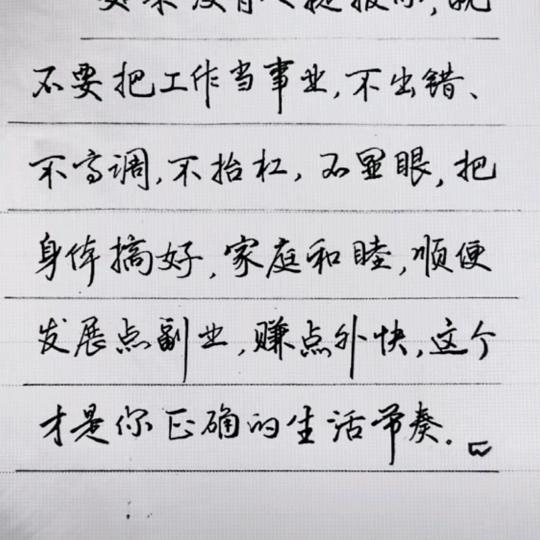 如果没有人提拔你,就
不要把工作当事业,不出错、
不高调,不抬杠,不显眼,把
身体搞好,家庭和睦,顺便
发展点副业,赚点外快,这个
才是你正确的生活节奏.